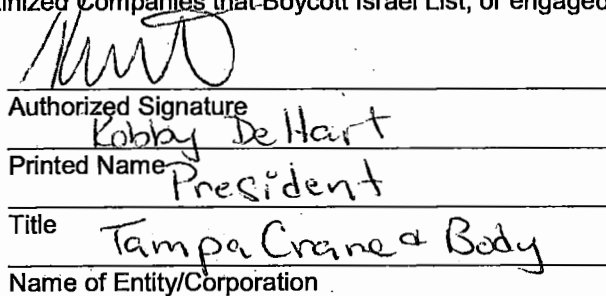 inized Companies that Boycott Israel List, or engaged
Authorized Signature
Robby DeHart
Printed Name
President
Title
Tampa Crane & Body
Name of Entity/Corporation